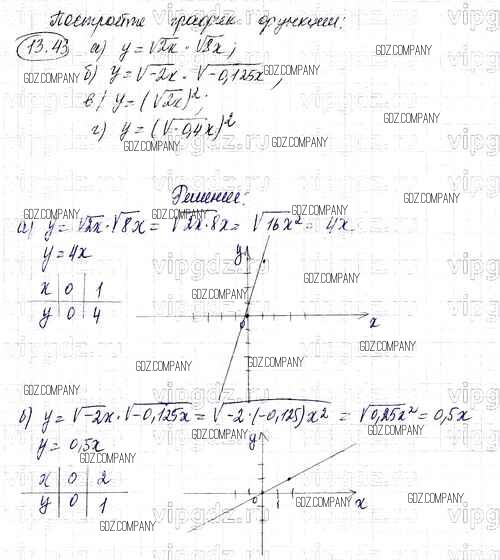 Постройте график функции:
13.43 а) y = √2x · √8x;
б) y = √-2x · √-0,125x;
в) y = (√2x)²;
г) y = (√-0,4x)²
Решение:
а) y = √2x · √8x = √2x · 8x = √16x² = 4x.
y = 4x
x | 0 | 1
y | 0 | 4
y
0
x
б) y = √-2x · √-0,125x = √-2·(-0,125)x² = √0,25x² = 0,5x
y = 0,5x
x | 0 | 2
y | 0 | 1
y
0
1
x
GDZ.COMPANY
vipgdz.ru